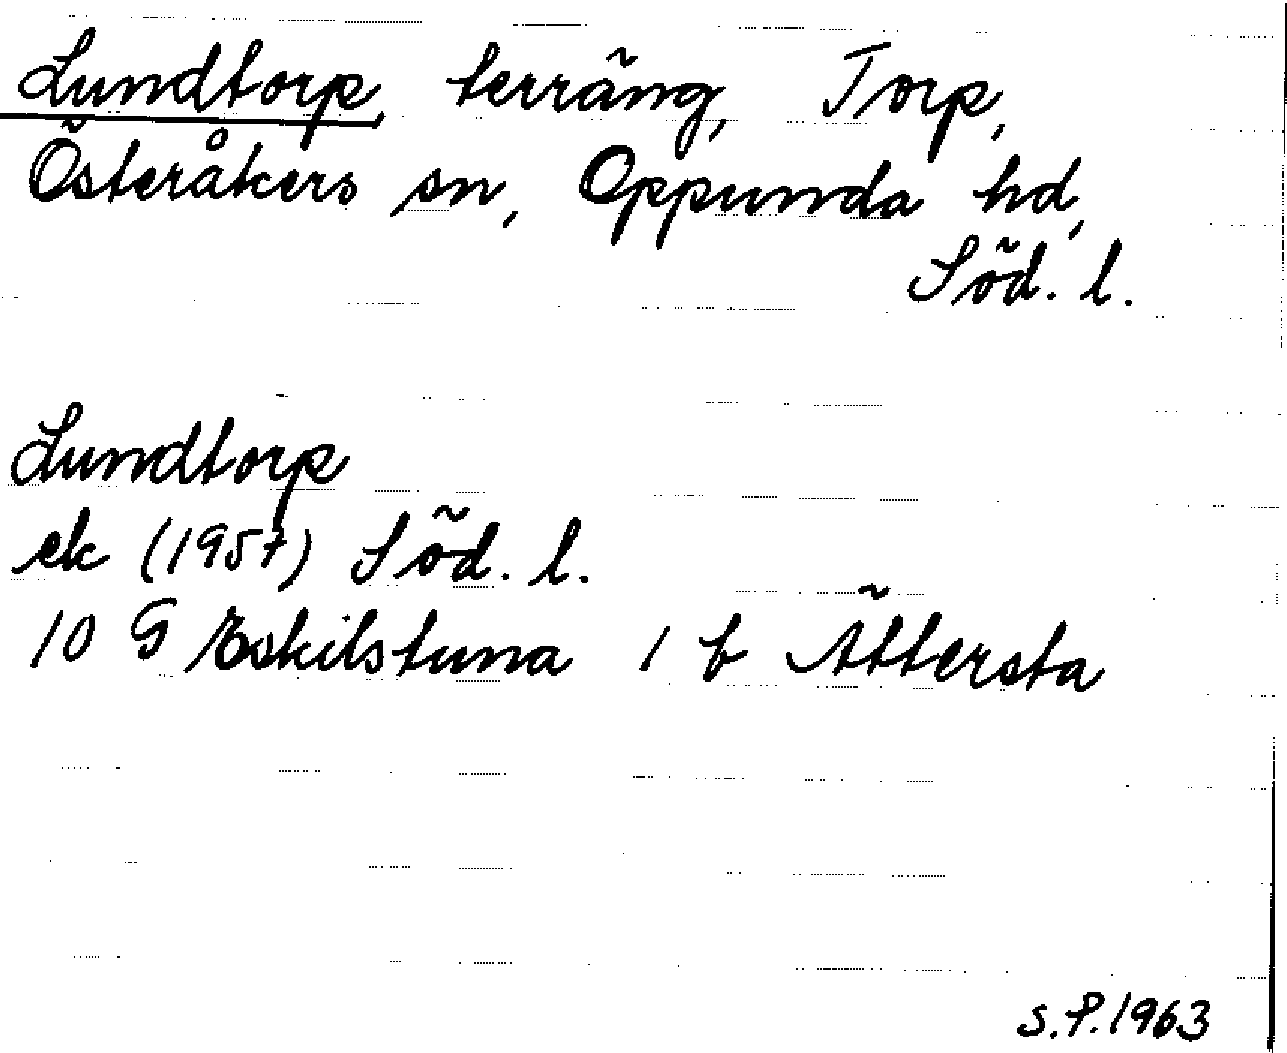 Lundtorp, terräng, Torp,
Österåkers sn, Oppunda hd,
Söd. l.
Lundtorp
ek (1957) Söd. l.
10 G Eskilstuna 1 b Ättersta
S.P. 1963